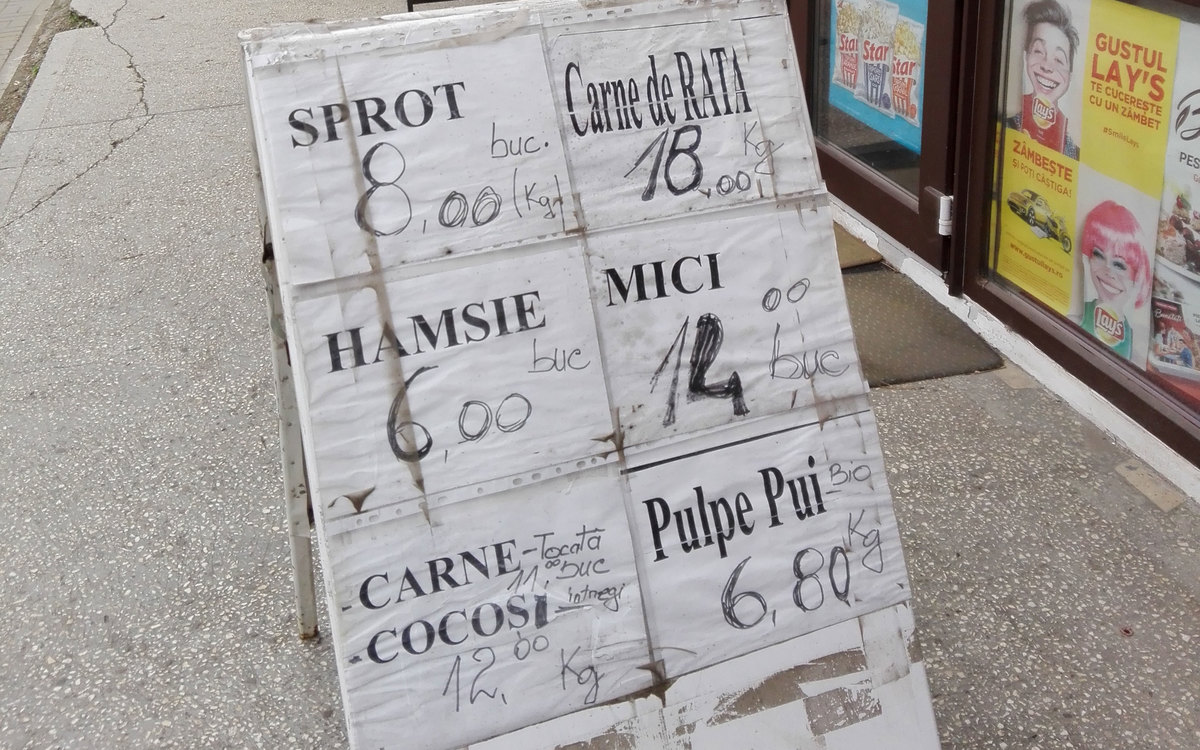 SPROT
buc.
8,00 (Kg)
Carne de RATA
18,00 Kg
HAMSIE
buc
6,00
MICI
00
14 buc
CARNE - Tocată
11,00 buc
COCOSI întregi
12,00 Kg
Pulpe Pui Bio
6,80 Kg
Star Star Star
GUSTUL
LAY'S
TE CUCEREȘTE
CU UN ZÂMBET
#SmileLays
Lay's
ZÂMBEȘTE
ȘI POȚI CÂȘTIGA!
www.gustullays.ro
Lay's